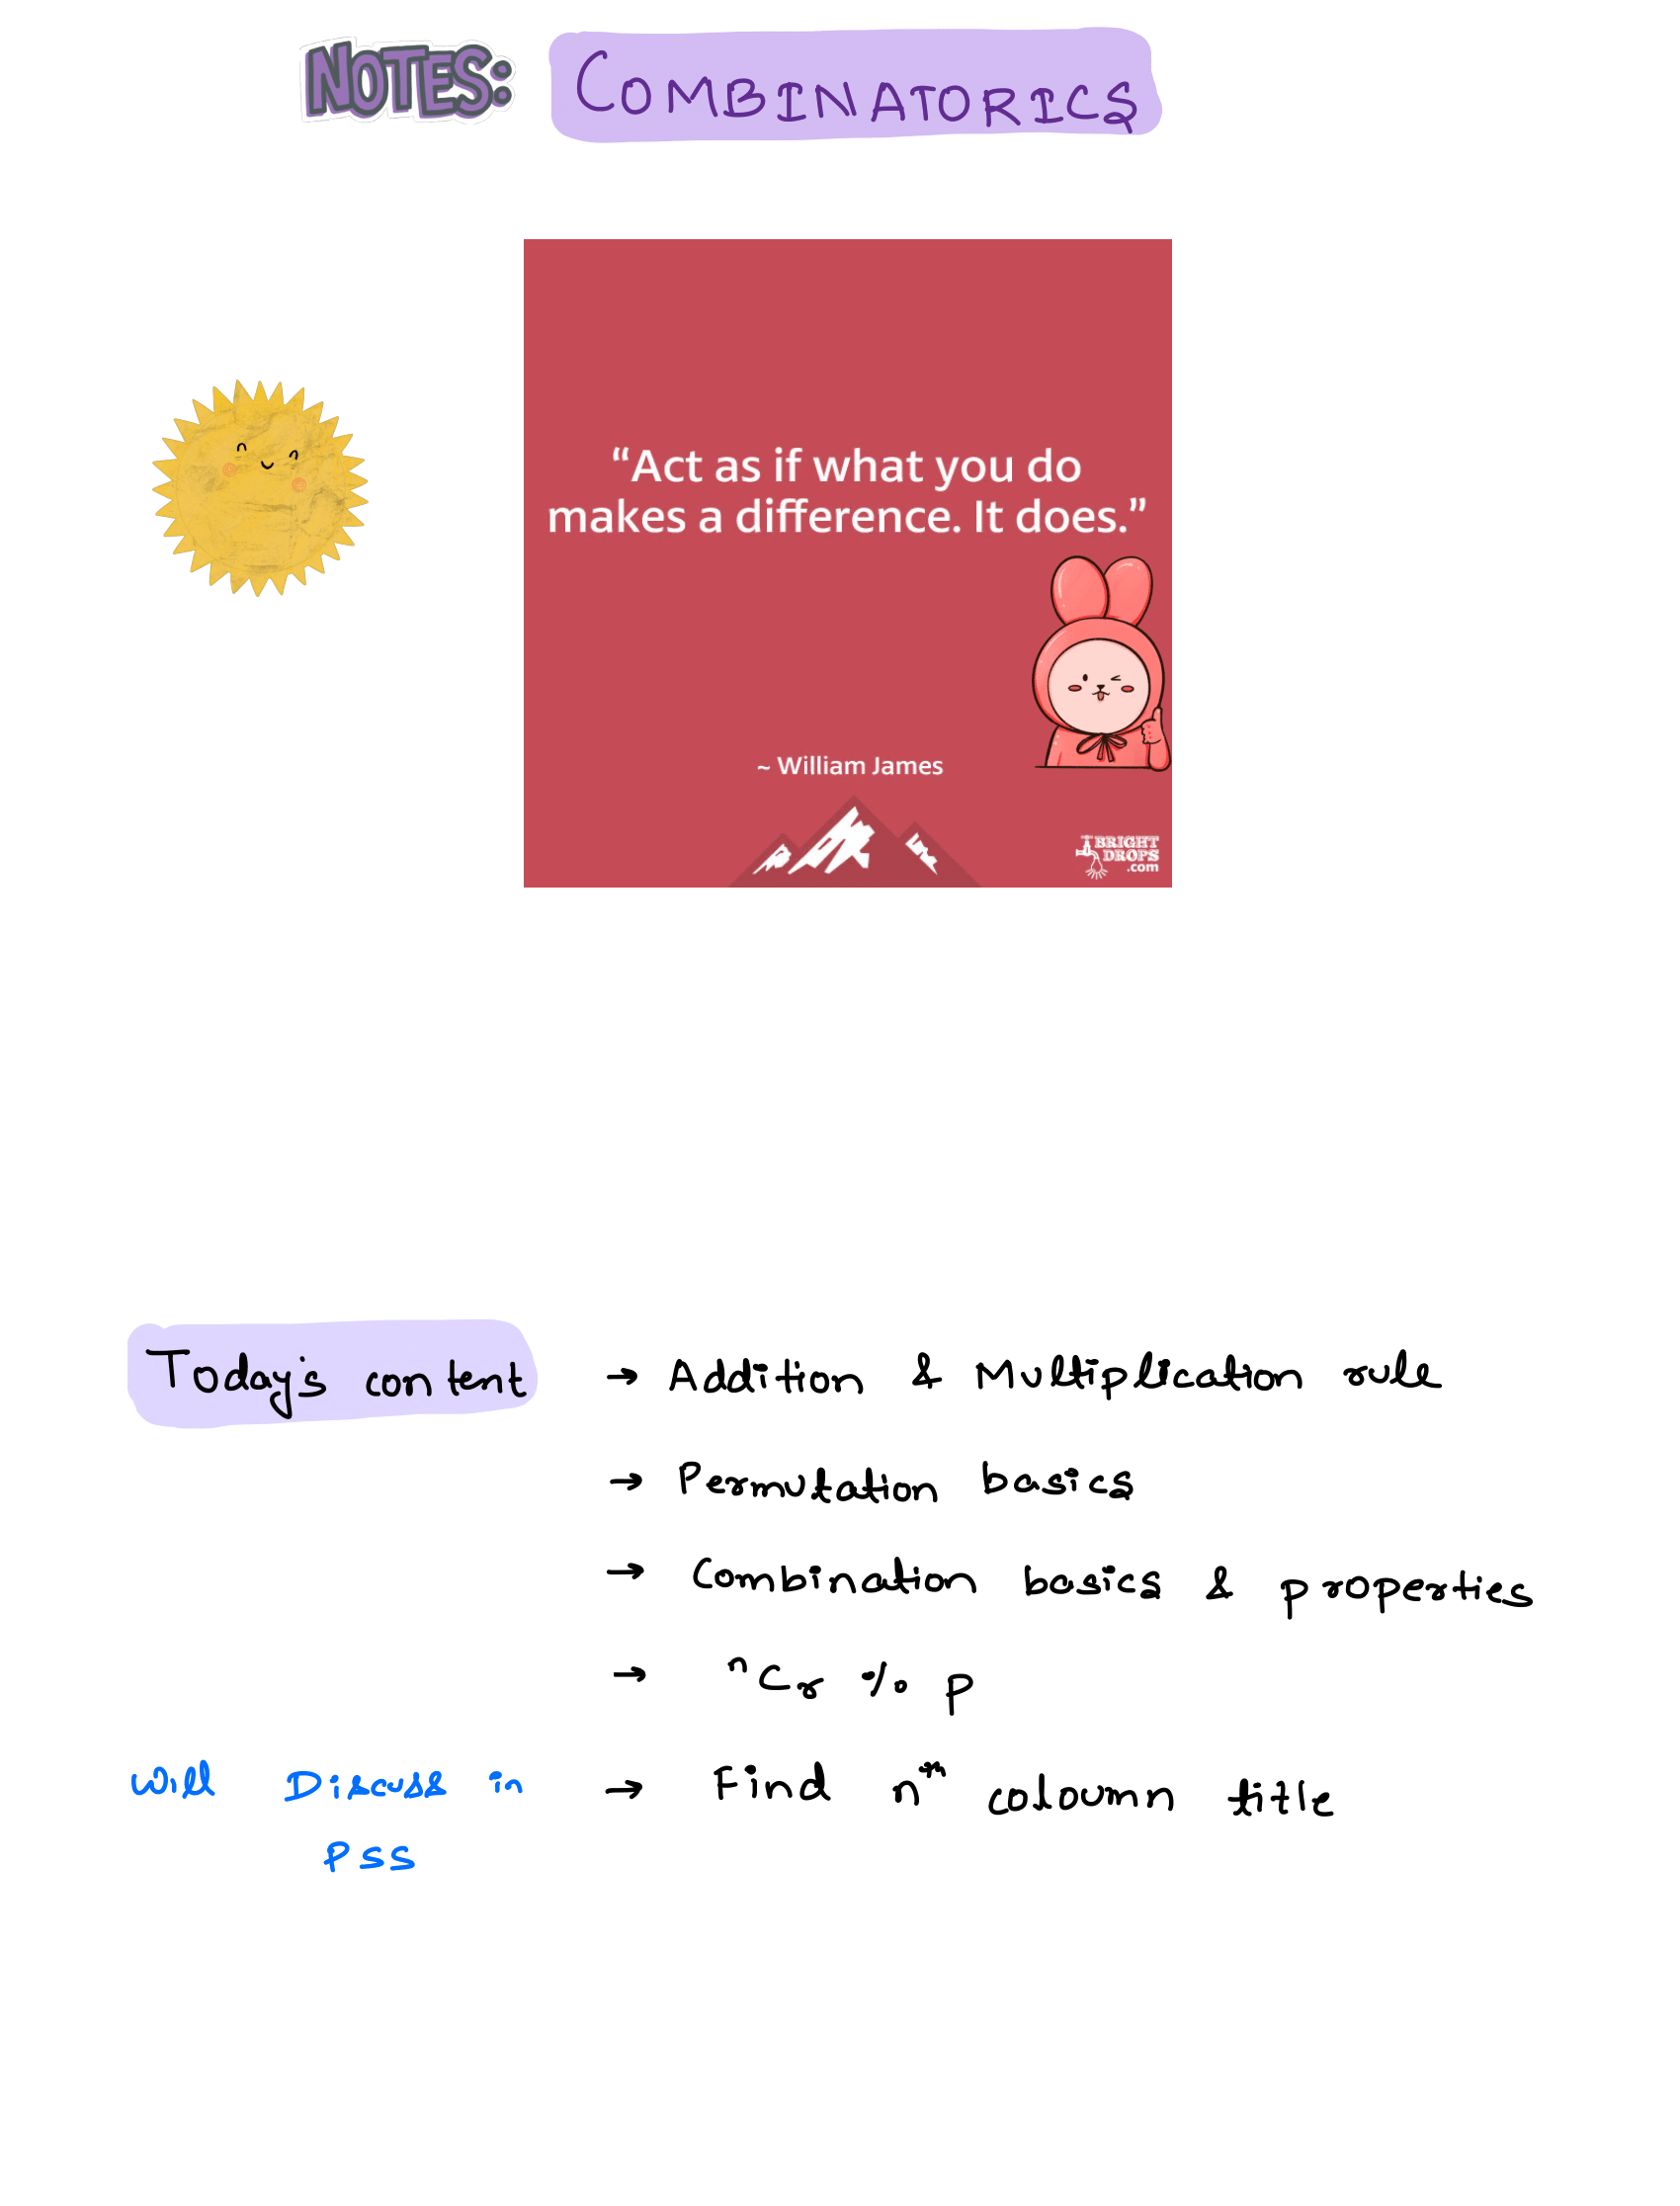 NOTES: COMBINATORICS
“Act as if what you do
makes a difference. It does.”
~ William James
BRIGHT
DROPS
.com
Today's content → Addition & Multiplication rule
→ Permutation basics
→ Combination basics & properties
→ ⁿCr % p
Will Discuss in → Find nth coloumn title
PSS